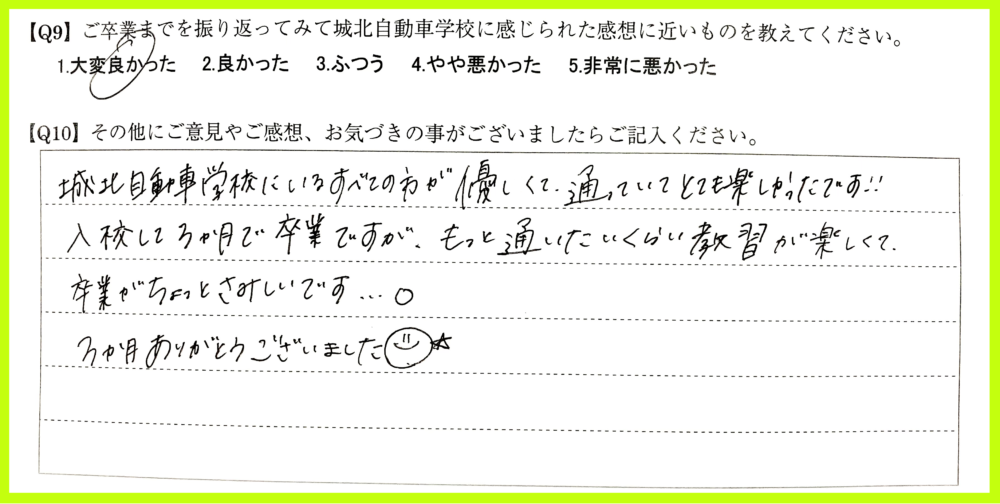 【Q9】ご卒業までを振り返ってみて城北自動車学校に感じられた感想に近いものを教えてください。
1.大変良かった 2.良かった 3.ふつう 4.やや悪かった 5.非常に悪かった
【Q10】その他にご意見やご感想、お気づきの事がございましたらご記入ください。
城北自動車学校にいるすべての方が優しくて、通っていてとても楽しかったです!!
入校して3か月で卒業ですが、もっと通いたいくらい教習が楽しくて、
卒業がちょっとさみしいです…。
3か月ありがとうございました